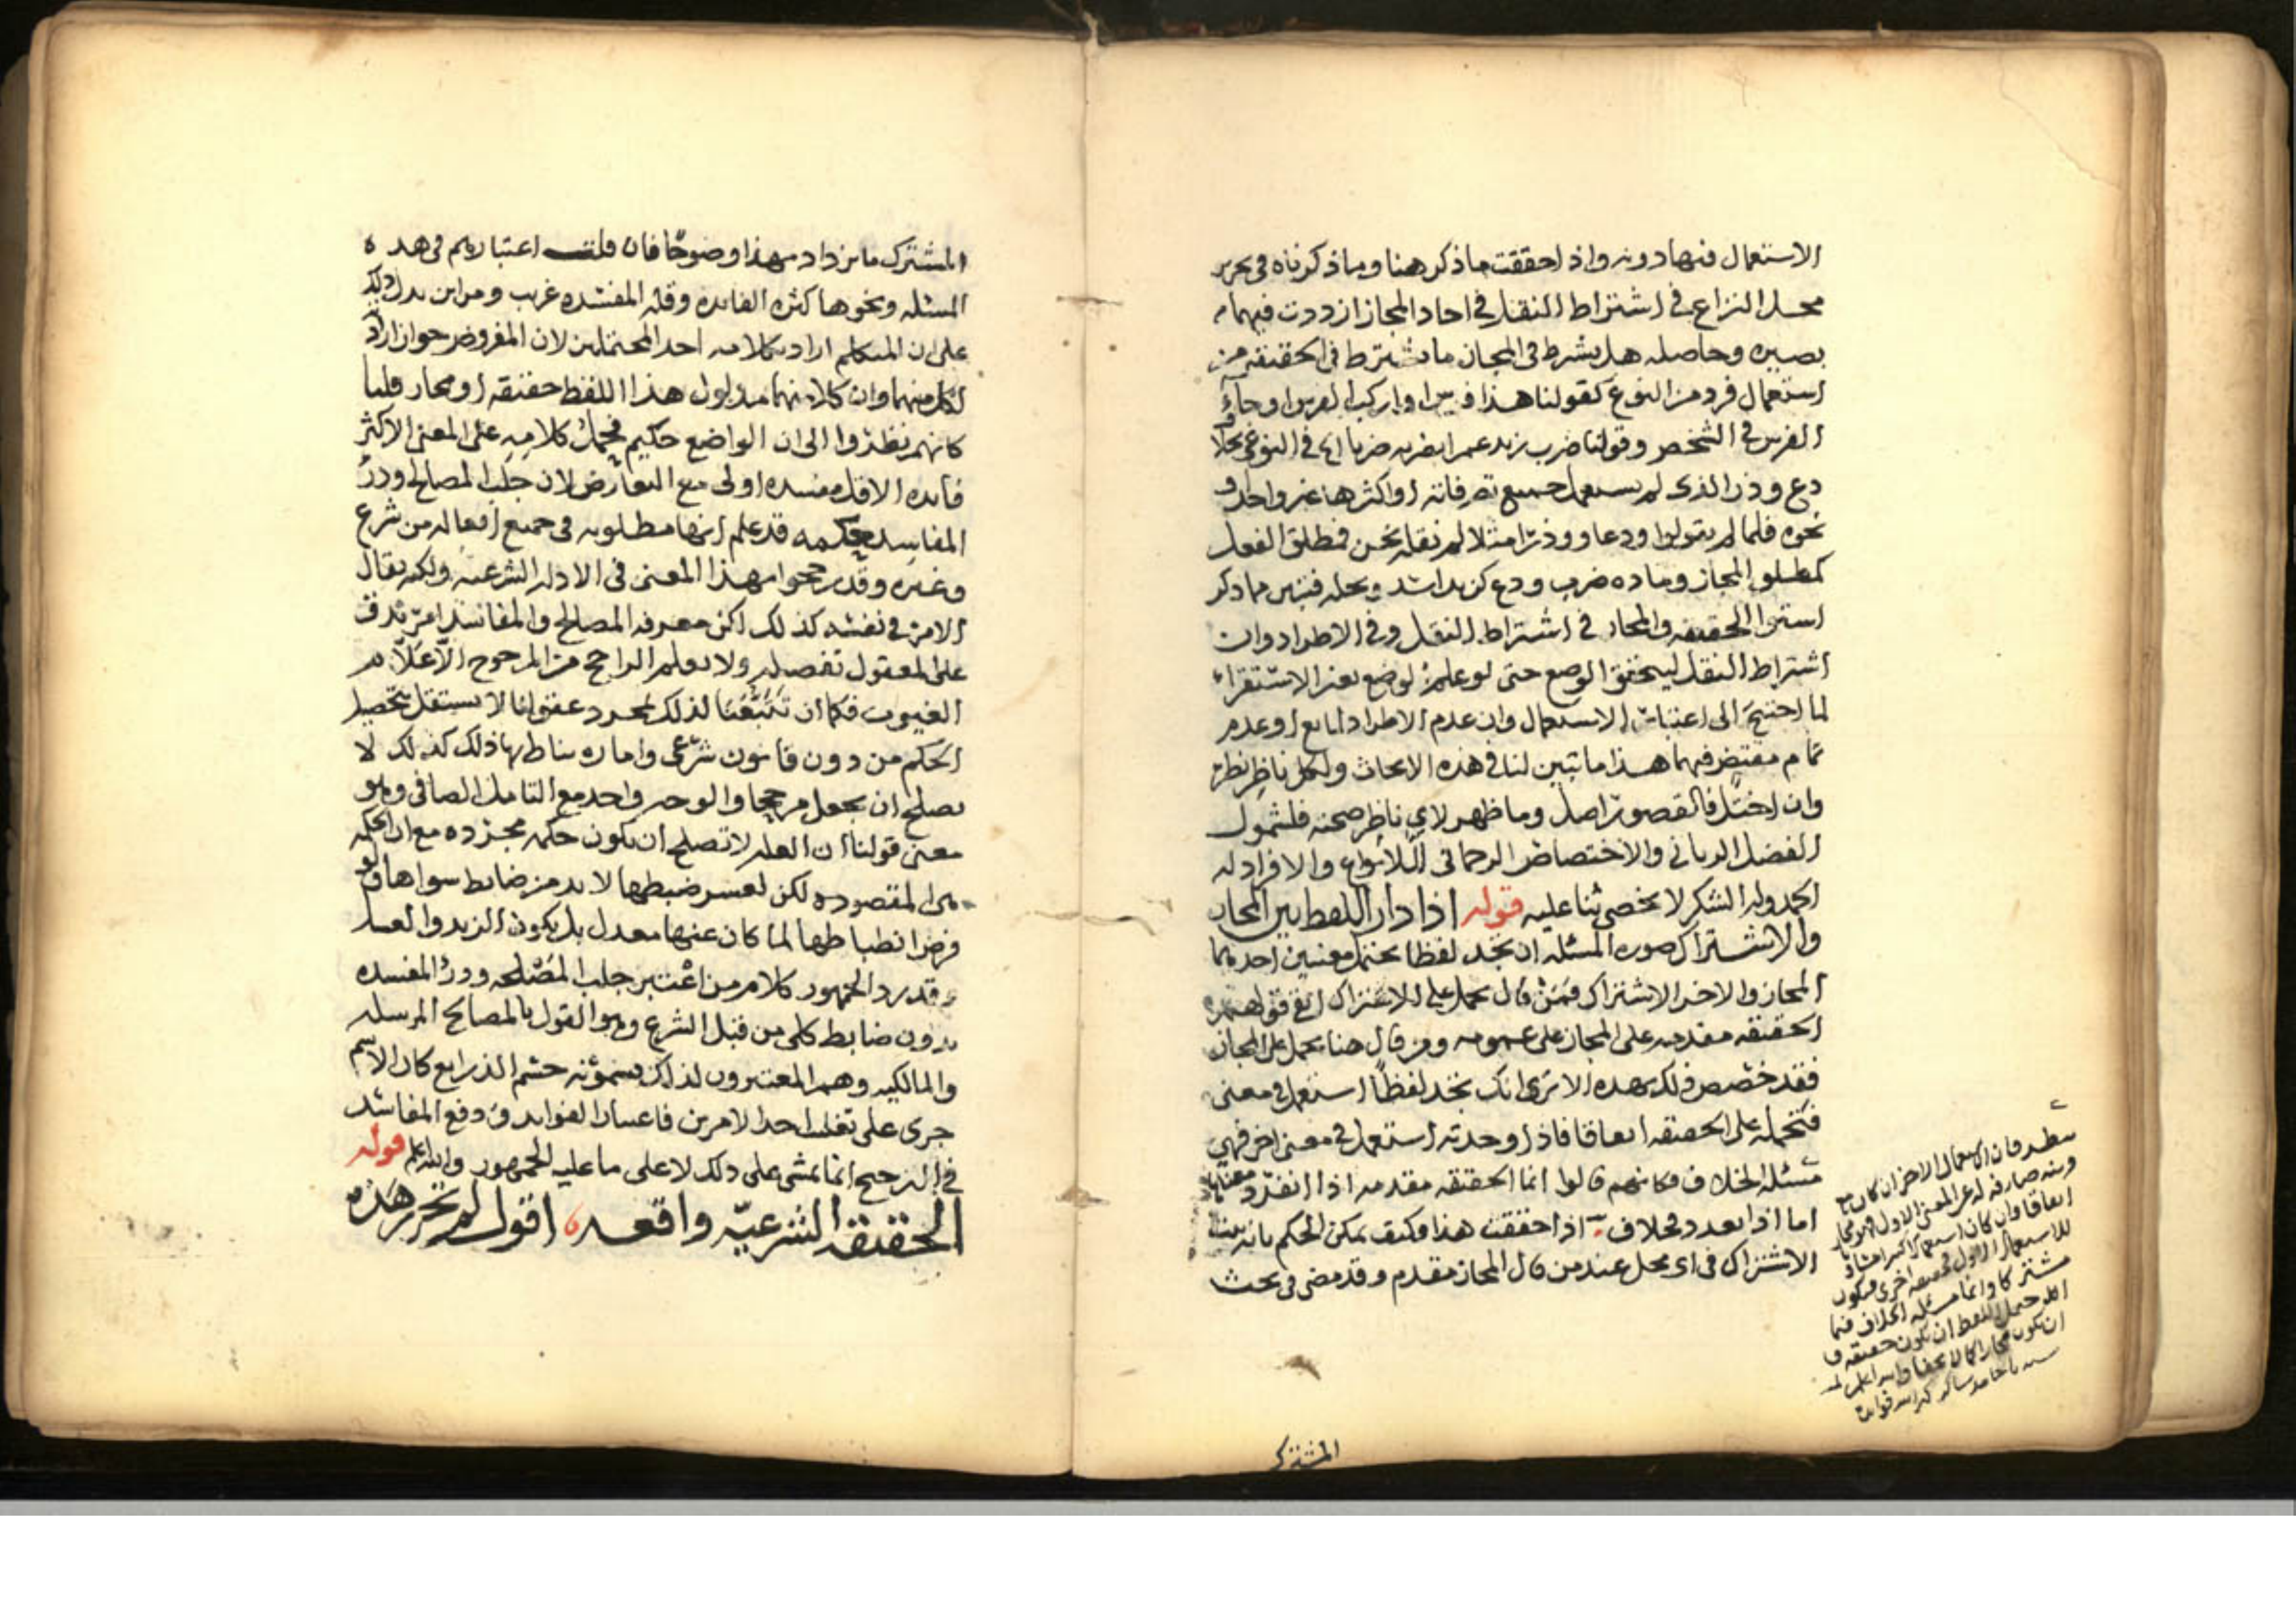 الاستعمال فيها دونه واذا حققت ما ذكر هنا وما ذكرناه في تحرير
محل النزاع في اشتراط النقل في احاد المجاز ازددت فيهما
بصيره وحاصله هل يشرط في المجاز ما يشترط في الحقيقه من
استعمال فرد من النوع كقولنا هذا فرس او اركب الفرس او جاء
الفرس في الشخص وقولنا ضرب زيد عمرا يضربه ضربا اي في النوعي بخلاف
دع وذر الذي لم يستعمل جميع تصرفاته او اكثرها غير واحد او
نحوه فلما لم يقولوا ودعا ووذرا مثلا لم نقله نحن فمطلق الفعل
كمطلق المجاز وماده ضرب ودع كزيد اسد ونخله فتبين مما ذكر
استوا الحقيقه والمجاز في اشتراط النقل وفي الاطراد وان
اشتراط النقل ليتحقق الوضع حتى لو علم الوضع بغير الاستقراء
لما احتيج الى اعتبار الاستعمال وان عدم الاطراد لمانع او عدم
تمام مقتض فيهما هذا ما تبين لنا في هذه الابحاث ولكل ناظر نظره
وان اختل فالقصور اصل وما ظهر لاي ناظر صحته فلشمول
الفضل الرباني والاختصاص الرحماني للانواع والافراد له
الحمد وله الشكر لا نحصي ثنا عليه قوله اذا دار اللفظ بين المجاز
والاشتراك صوره المسئله ان نجد لفظا يحتمل معنيين احدهما
المجاز والاخر الاشتراك فمن قال يحمل على الاشتراك ابقى قولهم
الحقيقه مقدمه على المجاز على عمومه ومن قال هنا يحمل على المجاز
فقد خصص ذلك بهذه الا ترى انك تجد لفظا استعمل في معنى
فتحمله على الحقيقه اتفاقا فاذا وجدته استعمل في معنى اخر فهي
مسئله الخلاف فكانهم قالوا انما الحقيقه مقدمه اذا انفرد معناها
اما اذا تعدد فخلاف اذا حققت هذا فكيف يمكن الحكم بانه
الاشتراك في اي محل عند من قال المجاز مقدم وقد مضى في بحث
المشترك
فان الاستعمال الاخر ان كان مع
قرينه صارفه له عن المعنى الاول فهو مجاز
اتفاقا وان كان استعمالا
للاستعمال الاول حقيقه اخرى فيكون
مشتركا وانما مسئله الخلاف فيما
اذا احتمل اللفظ ان يكون حقيقه و
ان يكون مجازا كما لا يخفى والله اعلم
المشترك ما يزداد بهذا وضوحا فان قلت اعتبارهم في هذه
المسئله ونحوها كثره الفائده وقله المفسده غريب ومن اين يدل ذلك
على ان المتكلم اراد بكلامه احد المحتملين لان المفروض جواز اراده
لكل منهما وان كلا منهما مدلول هذا اللفظ حقيقه او مجاز قلنا
كانهم نظروا الى ان الواضع حكيم فحمل كلامه على المعنى الاكثر
فائده الاقل مفسده اولى مع التعارض لان جلب المصالح ودرء
المفاسد حكمه قد علم انها مطلوبه في جميع افعاله من شرع
وغيره وقد رجحوا بهذا المعنى في الادله الشرعيه ولكن يقال
الامر في نفسه كذلك لكن معرفه المصالح والمفاسد امر تدق
على العقول تفصيله ولا يعلم الراجح من المرجوح الا علام
الغيوب فكما ان تتبعنا لذلك بمجرد عقولنا لا يستقل بتحصيل
الحكم من دون قانون شرعي واماره يناط بها ذلك كذلك لا
يصلح ان يجعل مرجحا والوجه واحد مع التامل الصافي وهو
معنى قولنا ان العله لا تصلح ان يكون حكمه مجرده مع ان الحكمه
هي المقصوده لكن لعسر ضبطها لا بد من ضابط سواها ولو
فرض انضباطها لما كان عنها معدل بل يكون الزبد والعسل
وقد رد الجمهور كلام من اعتبر جلب المصلحه ودرء المفسده
بدون ضابط كلي من قبل الشرع وهو القول بالمصالح المرسله
والمالكيه وهم المعتبرون لذلك يسمونه حسم الذرايع كان الاسم
جرى على تغليب احد الامرين فاعتبار الفوايد ودفع المفاسد
في الترجيح انما تمشى على ذلك لا على ما عليه الجمهور والله اعلم قوله
الحقيقه الشرعيه واقعه اقول لم تحرر هذه